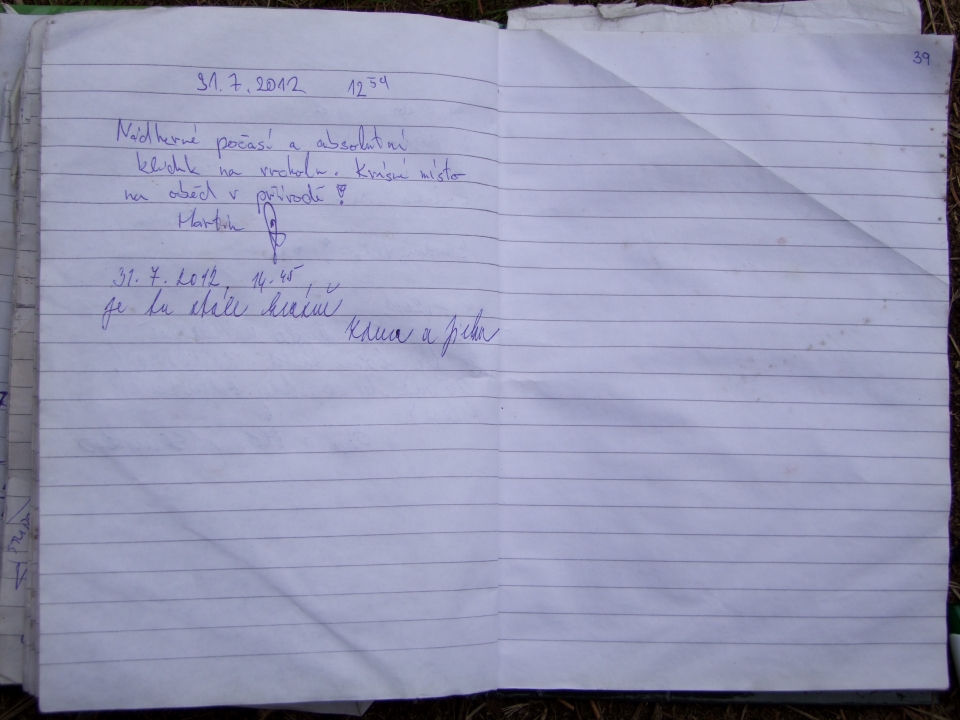 39
31.7.2012 12 54
Nádherné počasí a absolutní
klídek na vrcholu. Krásné místo
na oběd v přírodě!
Martin
31. 7. 2012, 14.45,
je tu stále krásně
a